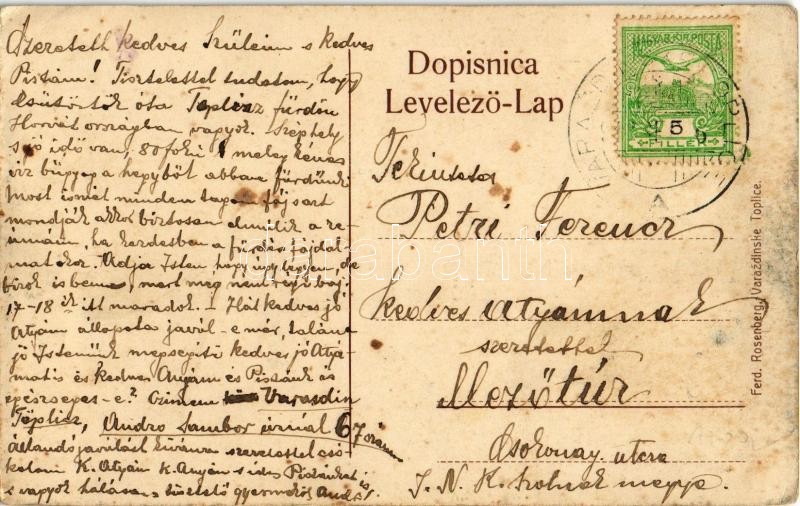 Szeretett kedves Szüleim s kedves
Pistám! Tisztelettel tudatom, hogy
csütörtök óta Töplicz fürdőn
Horvát országban vagyok. Szép hely
s jó idő van, 80 fokú meleg kénes
víz bugyog a hegyből abban fürdünk
most ismét minden tagom fáj s azt
mondják akkor biztosan elmúlik a
reumám, ha kezdetben a fürdés fájdal
mat okoz. Adja Isten hogy úgy legyen, de
bízok is benne, mert még nem régi baj.
17-18 ik itt maradok. - Hát kedves jó
Atyám állapota javúl-e már, talán a
jó Istenünk megsegíti kedves jó Atyá
mat is és kedves Anyám és Pistánk is
egészséges-e? Czímem Varasdin
Töplicz, Andro Sambor úrnál 67 szám
állandó javulást kívánva szeretettel csó
kolom K. Atyám K. Anyám s édes Pistánkat is
s vagyok hálásan tisztelő gyermekük
Dopisnica
Levelező-Lap
MAGYAR KIR. POSTA
5
FILLÉR
Tekintetes
Petri Ferencz
kedves atyámnak
szeretettel
Mezőtúr
Csokonay utcza
J. N. K. Szolnok megye.
Ferd. Rosenberg, Varaždinske Toplice.
darabanth